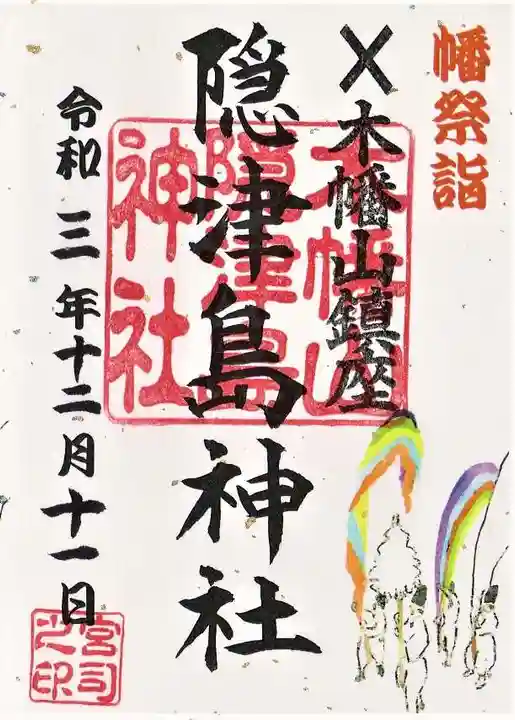 幡祭詣
〆木幡山鎮座
隠津島神社
令和三年十二月十一日
木幡山
隠津島
神社
宮司
之印